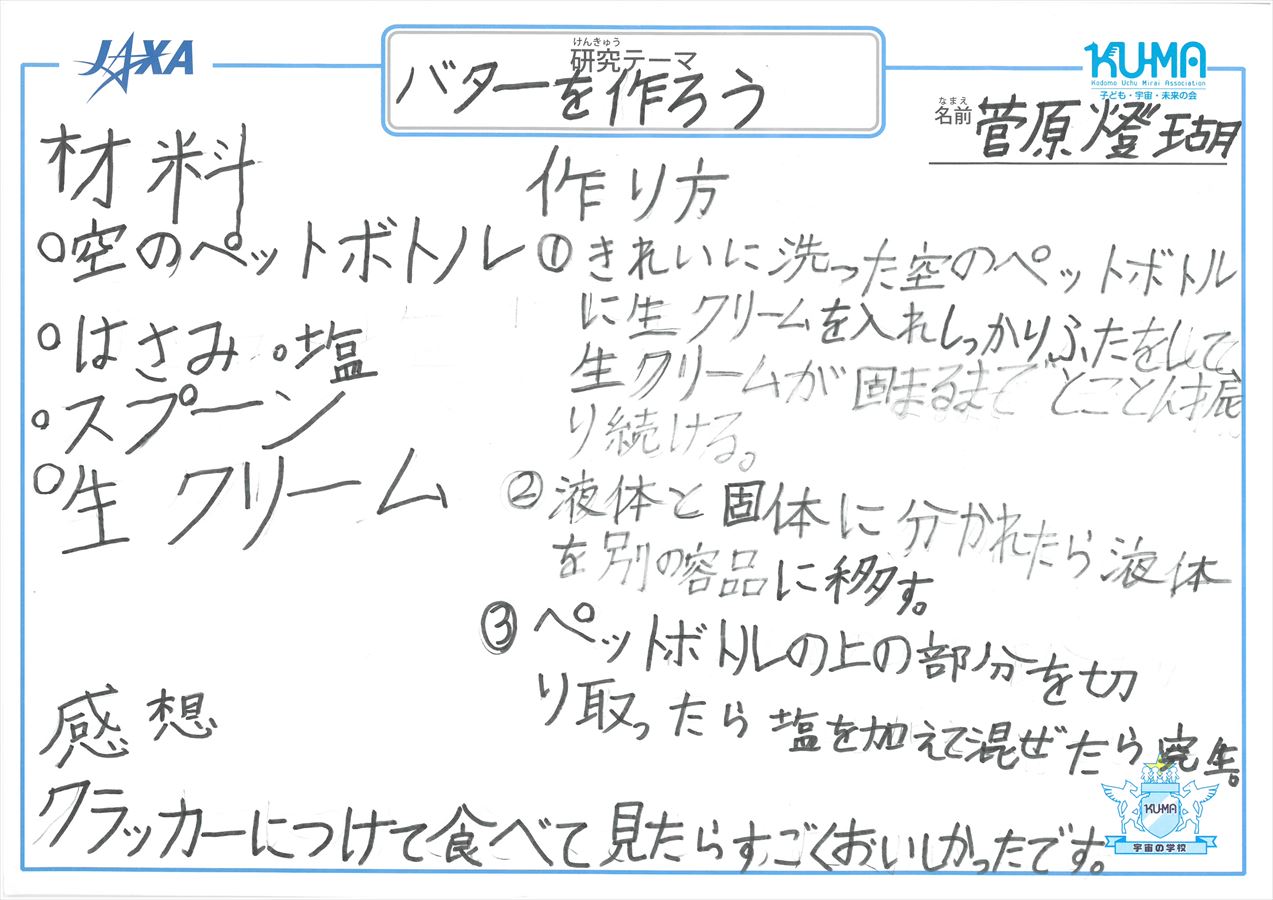 JAXA
けんきゅう
研究テーマ
バターを作ろう
KUMA
Kodomo Uchu Mirai Association
子ども・宇宙・未来の会
なまえ
名前 菅原燈瑚
材料
○空のペットボトル
○はさみ ○塩
○スプーン
○生クリーム
作り方
①きれいに洗った空のペットボトル
に生クリームを入れしっかりふたをして、
生クリームが固まるまでとことん振
り続ける。
②液体と固体に分かれたら液体
を別の容品に移す。
③ペットボトルの上の部分を切
り取ったら塩を加えて混ぜたら完生。
感想
クラッカーにつけて食べて見たらすごくおいしかったです。
KUMA
宇宙の学校